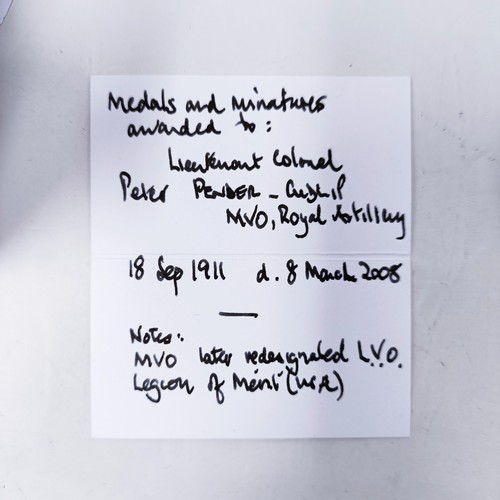 Medals and Minatures
awarded to:
Lieutenant Colonel
Peter PENDER - CUDLIP
MVO, Royal Artillery
18 Sep 1911 d. 8 March 2008
Notes:
MVO later redesignated L.V.O.
Legion of Merit (USA)